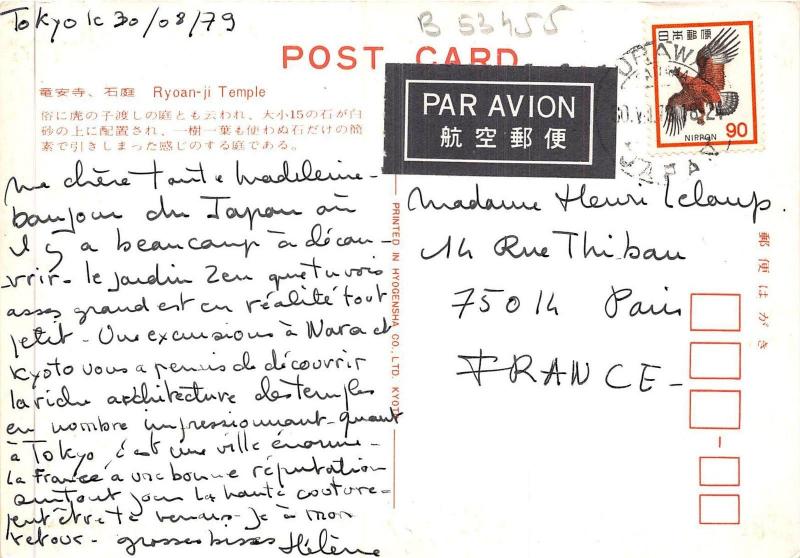 Tokyo le 30/08/79
B 53455
POST CARD
竜安寺、石庭 Ryoan-ji Temple
俗に虎の子渡しの庭とも云われ、大小15の石が白
砂の上に配置され、一樹一葉も使わぬ石だけの簡
素で引きしまった感じのする庭である。
PAR AVION
航空郵便
日本郵便
NIPPON 90
URAWA
JAPAN
ma chère tante Madeleine-
bonjour du Japon où
il y a beaucoup à décou-
vrir- le jardin Zen que tu vois
assez grand est en réalité tout
petit- Une excursion à Nara et
Kyoto vous a permis de découvrir
la riche architecture des temples
en nombre impressionnant- quant
à Tokyo, c'est une ville énorme-
La France a une bonne réputation
surtout pour la haute couture-
peut être te verrais-je à mon
retour- grosses bises Hélène
PRINTED IN HYOGENSHA CO., LTD. KYOTO
Madame Henri Leloup.
14 Rue Thibau
75014 Paris
FRANCE-
郵便はがき